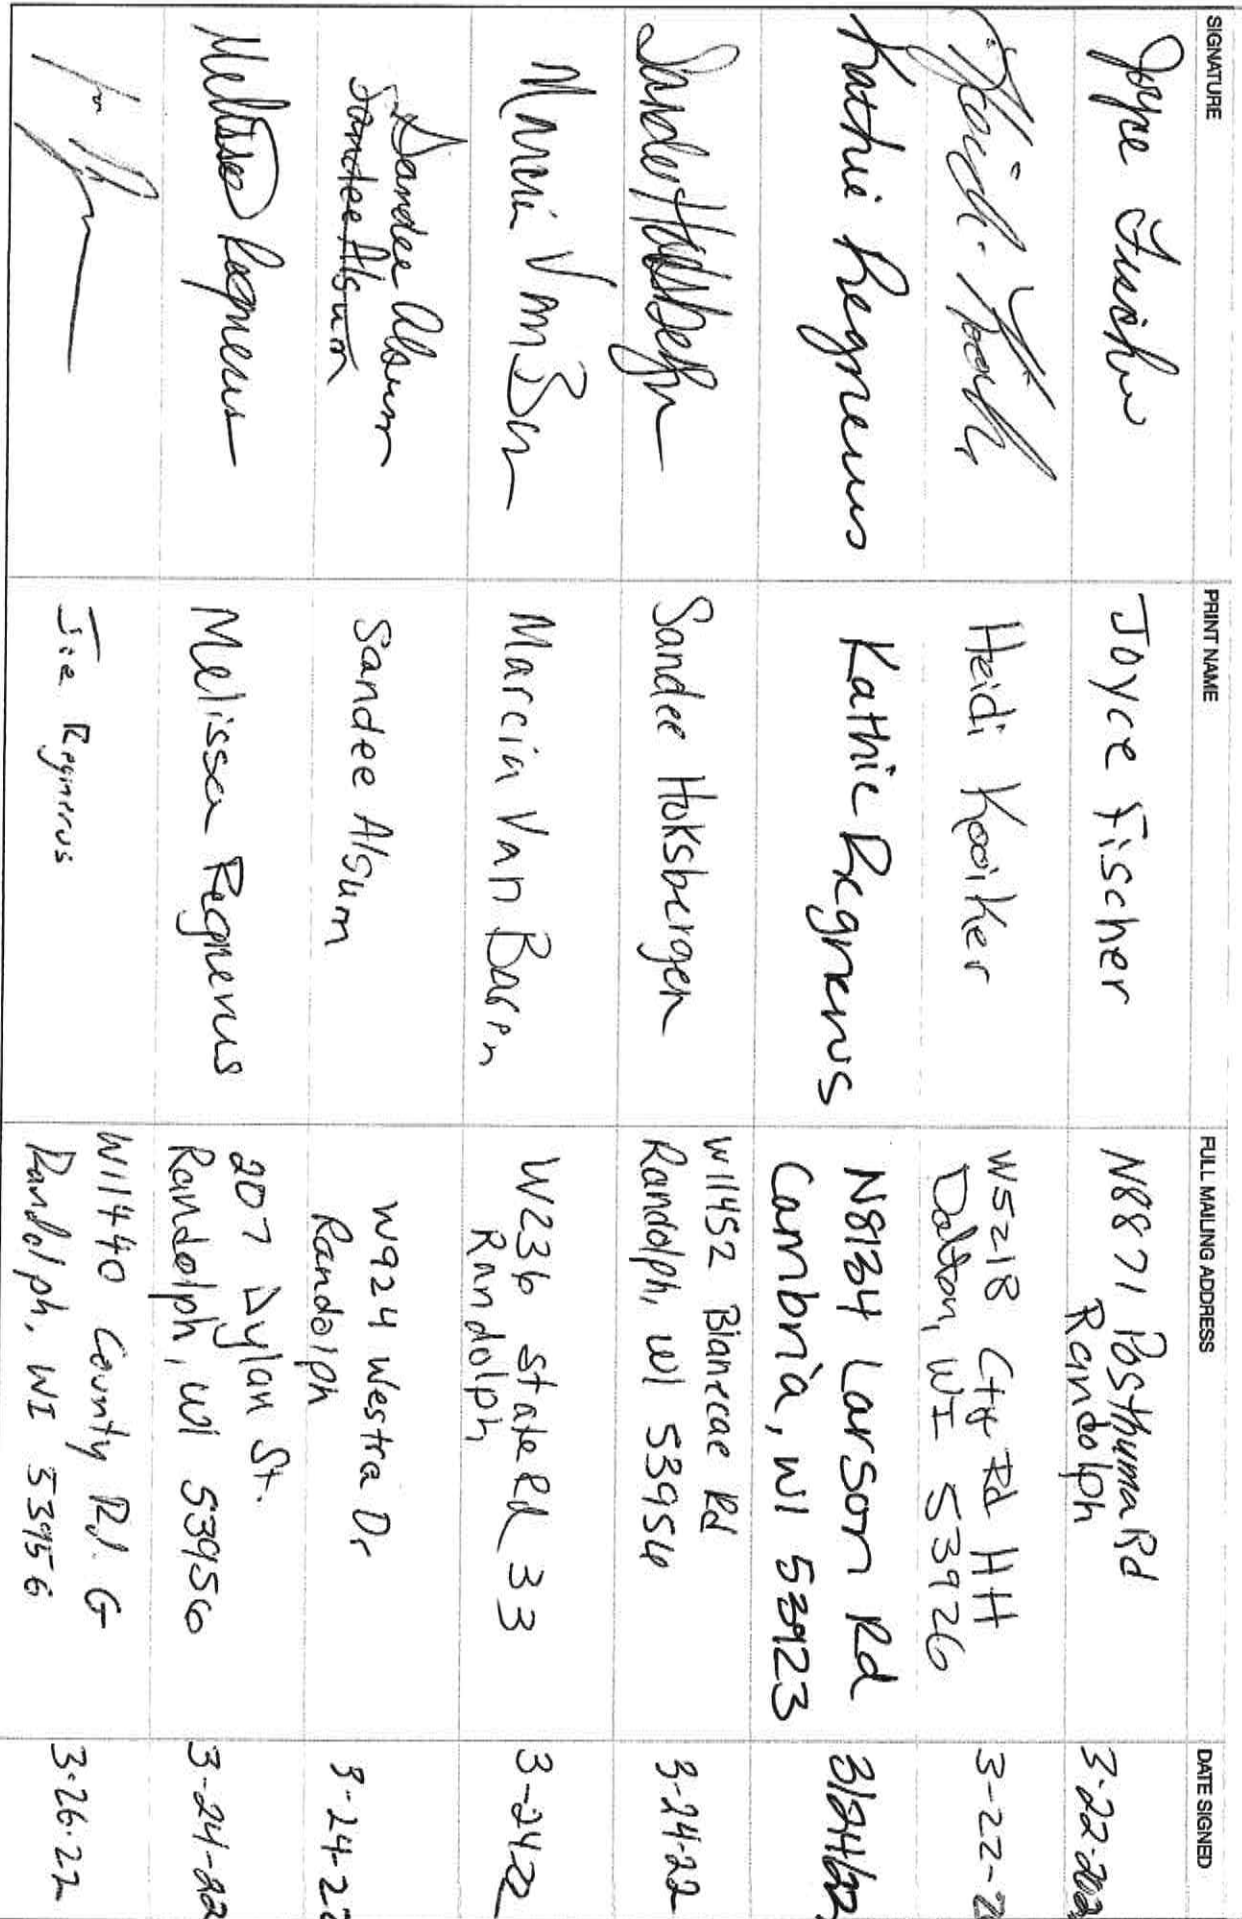 SIGNATURE PRINT NAME FULL MAILING ADDRESS DATE SIGNED
Joyce Fischer Joyce Fischer N8871 Posthuma Rd
Randolph 3-22-202
Heidi Kooiker Heidi Kooiker W5218 Cty Rd HH
Dalton, WI 53926 3-22-2
Kathie Regnerus Kathie Regnerus N8134 Larson Rd
Cambria, WI 53923 3/24/22
Sandee Hoksbergen Sandee Hoksbergen W11452 Rd
Randolph, WI 53956 3-24-22
Marcia Van Buren Marcia Van Buren W236 State Rd 33
Randolph 3-24-22
Sandee Alsum
Sandee Alsum Sandee Alsum W924 Westra Dr
Randolph 3-24-2
Melissa Regnerus Melissa Regnerus 207 Dylan St.
Randolph, WI 53956 3-24-22
Regnerus W11440 County Rd. G
Randolph, WI 53956 3-26-22